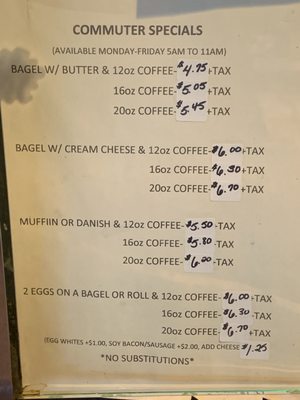 COMMUTER SPECIALS
(AVAILABLE MONDAY-FRIDAY 5AM TO 11AM)
BAGEL W/ BUTTER & 12oz COFFEE-$4.75+TAX
16oz COFFEE-$5.05+TAX
20oz COFFEE-$5.45+TAX
BAGEL W/ CREAM CHEESE & 12oz COFFEE-$6.00+TAX
16oz COFFEE-$6.30+TAX
20oz COFFEE-$6.70+TAX
MUFFIIN OR DANISH & 12oz COFFEE-$5.50-TAX
16oz COFFEE-$5.80-TAX
20oz COFFEE-$6.00-TAX
2 EGGS ON A BAGEL OR ROLL & 12oz COFFEE-$6.00+TAX
16oz COFFEE-$6.30-TAX
20oz COFFEE-$6.70+TAX
(EGG WHITES +$1.00, SOY BACON/SAUSAGE +$2.00, ADD CHEESE $1.25
*NO SUBSTITUTIONS*